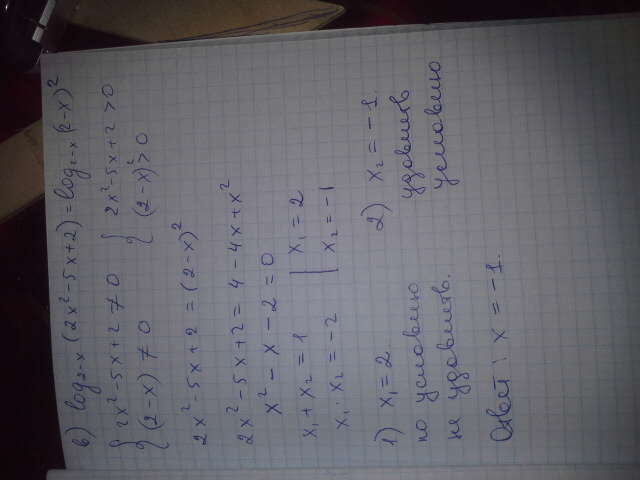 в) log₂₋ₓ (2x² - 5x + 2) = log₂₋ₓ (2-x)²
{ 2x² - 5x + 2 ≠ 0 { 2x² - 5x + 2 > 0
(2-x) ≠ 0 (2-x)² > 0
2x² - 5x + 2 = (2-x)²
2x² - 5x + 2 = 4 - 4x + x²
x² - x - 2 = 0
x₁ + x₂ = 1 | x₁ = 2
x₁ · x₂ = -2 | x₂ = -1
1) x₁ = 2. 2) x₂ = -1.
по условию удовлетв
не удовлетв. условию
Ответ: x = -1.